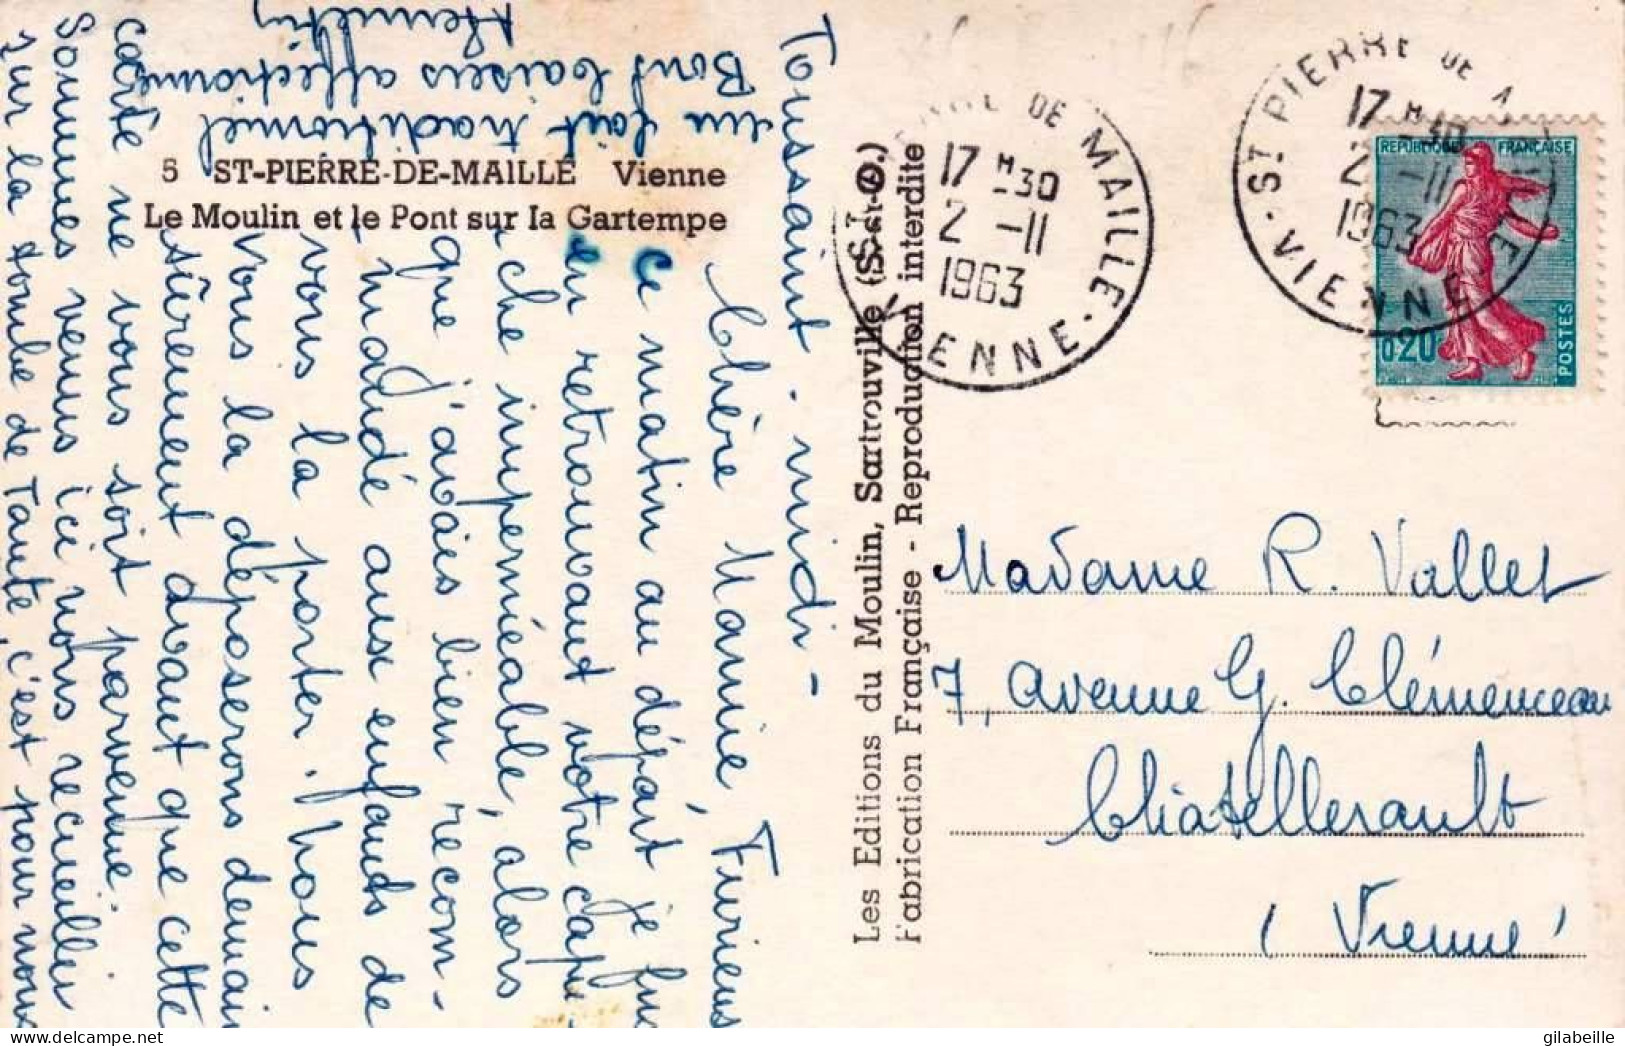 5 ST-PIERRE-DE-MAILLE Vienne
Le Moulin et le Pont sur la Gartempe
Toussaint - midi -
Chère Mamie,
Ce matin au départ je fus
en retrouvant votre capu-
che imperméable, alors
que j'avais bien recom-
mandé aux enfants de
vous la porter. Nous
vous la déposerons demain
sûrement avant que cette
carte ne vous soit parvenue.
Sommes venus ici nous recueillir
sur la tombe de Tante, c'est pour nous
un fait traditionnel
Bons baisers affectionnés
Les Editions du Moulin, Sartrouville (S.-et-O.)
Fabrication Française - Reproduction interdite
ST PIERRE DE MAILLE
17 H 30
2 -11
1963
VIENNE
ST PIERRE DE MAILLE
17 H 30
2 -11
1963
VIENNE
REPUBLIQUE FRANÇAISE
0,20
POSTES
Madame R. Vallet
7, avenue G. Clémenceau
Châtellerault
(Vienne)
gilabeille